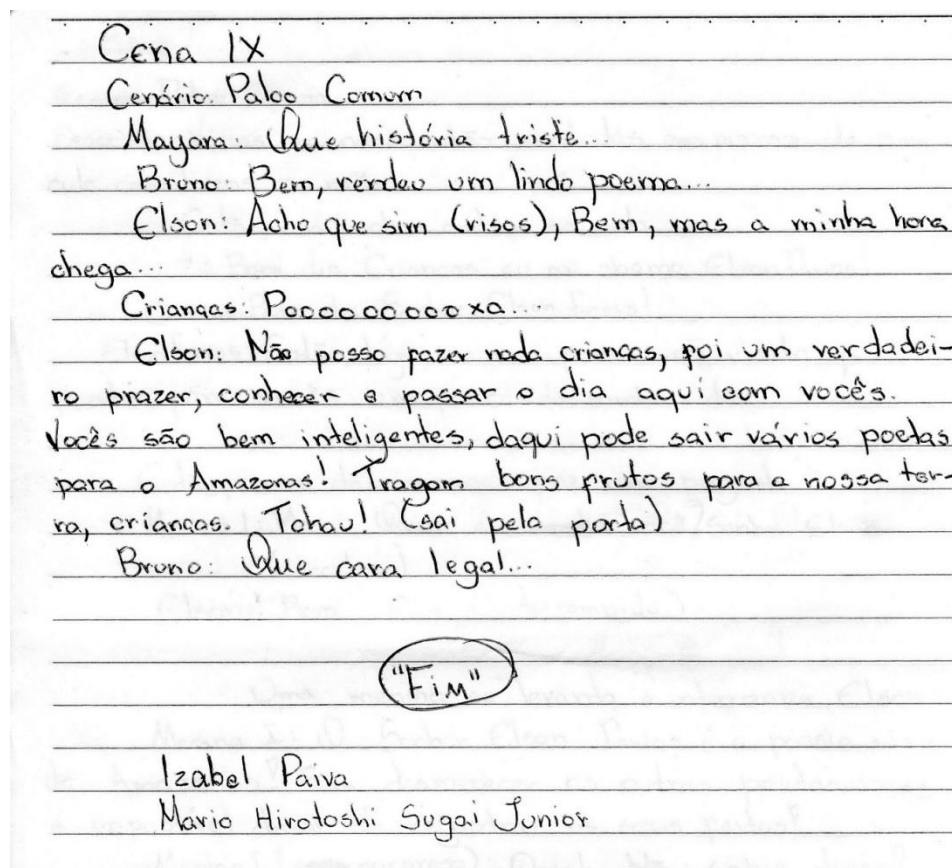 Cena IX
Cenário: Palco Comum
Mayara: Que história triste...
Bruno: Bem, rendeu um lindo poema...
Elson: Acho que sim (risos), Bem, mas a minha hora
chega...
Crianças: Pooooooooooxa...
Elson: Não posso fazer nada crianças, foi um verdadei-
ro prazer, conhecer e passar o dia aqui com vocês.
Vocês são bem inteligentes, daqui pode sair vários poetas
para o Amazonas! Tragam bons frutos para a nossa ter-
ra, crianças. Tchau! (sai pela porta)
Bruno: Que cara legal...
"Fim"
Izabel Paiva
Mario Hirotoshi Sugai Junior